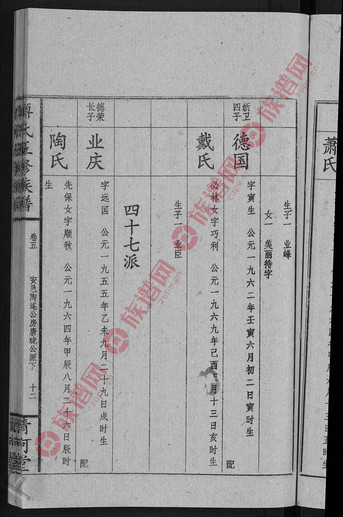 萧氏
生子一 业峰
女一 美丽待字
新卫四子
德国 字寅生 公元一九六二年壬寅六月初二日寅时生 配
戴氏 必林女字巧利 公元一九六九年己酉三月十三日亥时生
生子一 业臣
四十七派
德荣长子
业庆 字远国 公元一九五五年乙未九月二十九日戌时生 配
陶氏 先保女字顺秋 公元一九六四年甲辰八月二十六日辰时
生
氏五修族谱
卷五
安邑陶遂公房唐珑公派下 十二
清河堂
族谱网
族谱网
族谱网